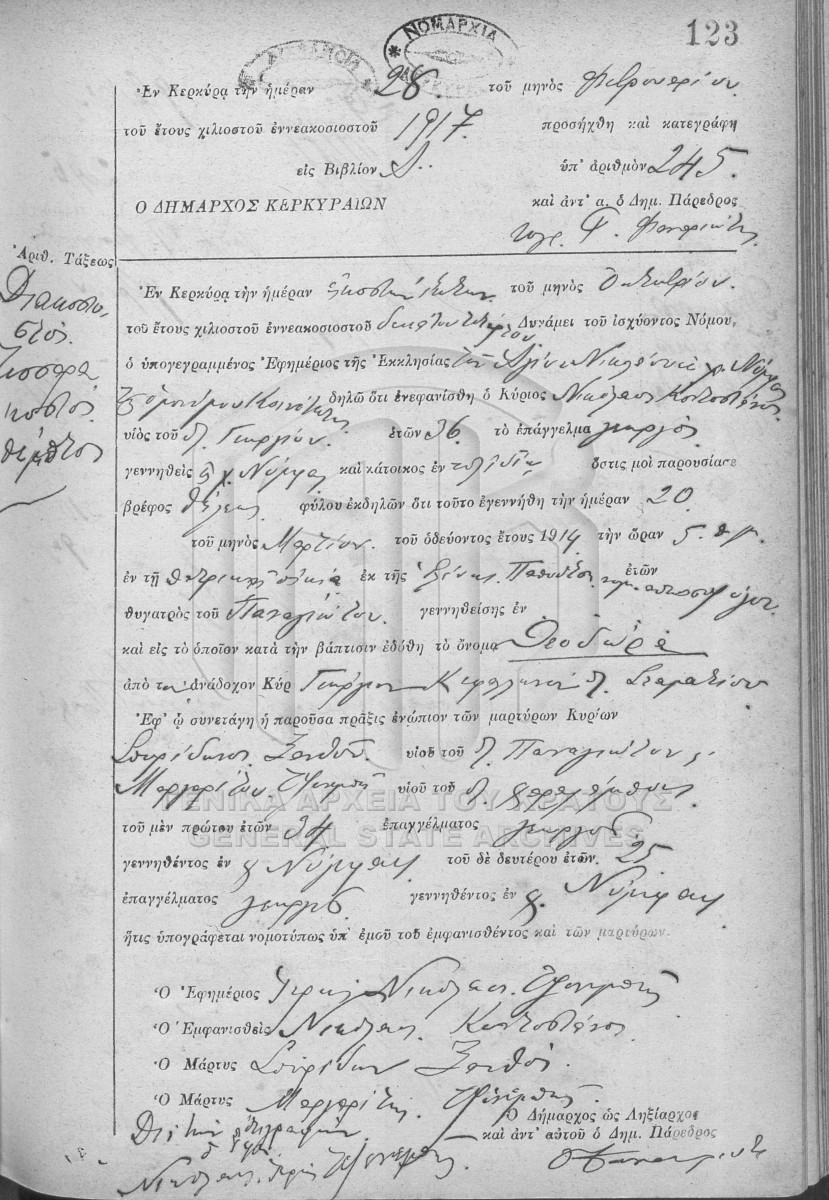 123
ΝΟΜΑΡΧΙΑ
Ἐν Κερκύρᾳ τὴν ἡμέραν 28 τοῦ μηνὸς Φεβρουαρίου
τοῦ ἔτους χιλιοστοῦ ἐννεακοσιοστοῦ 1917 προσήχθη καὶ κατεγράφη
εἰς Βιβλίον Δ. ὑπ' ἀριθμὸν 245.
Ο ΔΗΜΑΡΧΟΣ ΚΕΡΚΥΡΑΙΩΝ καὶ ἀντ' α. ὁ Δημ. Πάρεδρος
Ἀριθ. Τάξεως
Διακοσιο
στὸς
τεσσαρα
κοστὸς
πέμπτος
Ἐν Κερκύρᾳ τὴν ἡμέραν εἰκοστὴν τοῦ μηνὸς Ὀκτωβρίου.
τοῦ ἔτους χιλιοστοῦ ἐννεακοσιοστοῦ δεκάτου τετάρτου Δυνάμει τοῦ ἰσχύοντος Νόμου,
ὁ ὑπογεγραμμένος Ἐφημέριος τῆς Ἐκκλησίας τοῦ Ἁγίου Νικολάου χ. Νύμφας
τῆς ὁμωνύμου Κοινότητος δηλῶ ὅτι ἐνεφανίσθη ὁ Κύριος Νικόλαος Κοντοστάνος
υἱὸς τοῦ π. Γεωργίου. ἐτῶν 36 τὸ ἐπάγγελμα γεωργὸς
γεννηθεὶς χ. Νύμφας καὶ κάτοικος ἐν ὅστις μοὶ παρουσίασε
βρέφος θήλεος φύλου ἐκδηλῶν ὅτι τοῦτο ἐγεννήθη τὴν ἡμέραν 20
τοῦ μηνὸς Μαρτίου. τοῦ ὁδεύοντος ἔτους 1914 τὴν ὥραν 5. π.μ.
ἐν τῇ πατρικῇ οἰκίᾳ ἐκ τῆς ἐτῶν
θυγατρὸς τοῦ Παναγιώτου. γεννηθείσης ἐν
καὶ εἰς τὸ ὁποῖον κατὰ τὴν βάπτισιν ἐδόθη τὸ ὄνομα Θεοδώρα
ἀπὸ τον ἀνάδοχον Κύρ Γεώργιον π. Σταματίου
Ἐφ' ᾧ συνετάγη ἡ παροῦσα πρᾶξις ἐνώπιον τῶν μαρτύρων Κυρίων
Σπυρίδωνος Ξανθοῦ. υἱοῦ τοῦ π. Παναγιώτου
Μαργαρίτου υἱοῦ τοῦ π. Χαραλάμπους
ΓΕΝΙΚΑ ΑΡΧΕΙΑ ΤΟΥ ΚΡΑΤΟΥΣ
GENERAL STATE ARCHIVES
τοῦ μὲν πρώτου ἐτῶν 34 ἐπαγγέλματος γεωργοῦ
γεννηθέντος ἐν χ. Νύμφαις τοῦ δὲ δευτέρου ἐτῶν. 25
ἐπαγγέλματος γεωργοῦ. γεννηθέντος ἐν χ. Νύμφαις
ἥτις ὑπογράφεται νομοτύπως ὑπ' ἐμοῦ τοῦ ἐμφανισθέντος καὶ τῶν μαρτύρων.
Ὁ Ἐφημέριος Ἱερεὺς Νικόλαος
Ὁ Ἐμφανισθεὶς Νικόλαος Κοντοστάνος
Ὁ Μάρτυς Σπυρίδων Ξανθὸς
Ὁ Μάρτυς Μαργαρίτης
Ὁ Δήμαρχος ὡς Ληξίαρχος
Διὰ τὴν ἀντιγραφὴν καὶ ἀντ' αὐτοῦ ὁ Δημ. Πάρεδρος
Νικόλαος Ἱερεὺς